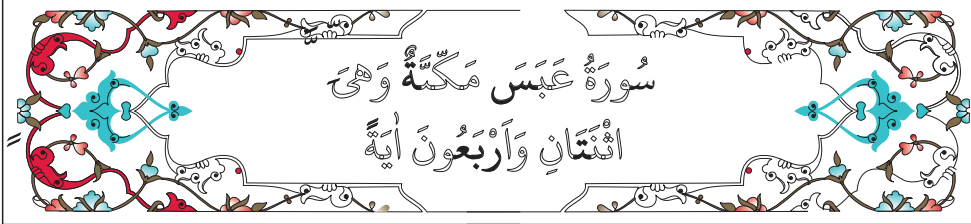 سُورَةُ عَبَسَ مَكِّيَّةٌ وَهِيَ
اثْنَتَانِ وَاَرْبَعُونَ اٰيَةً